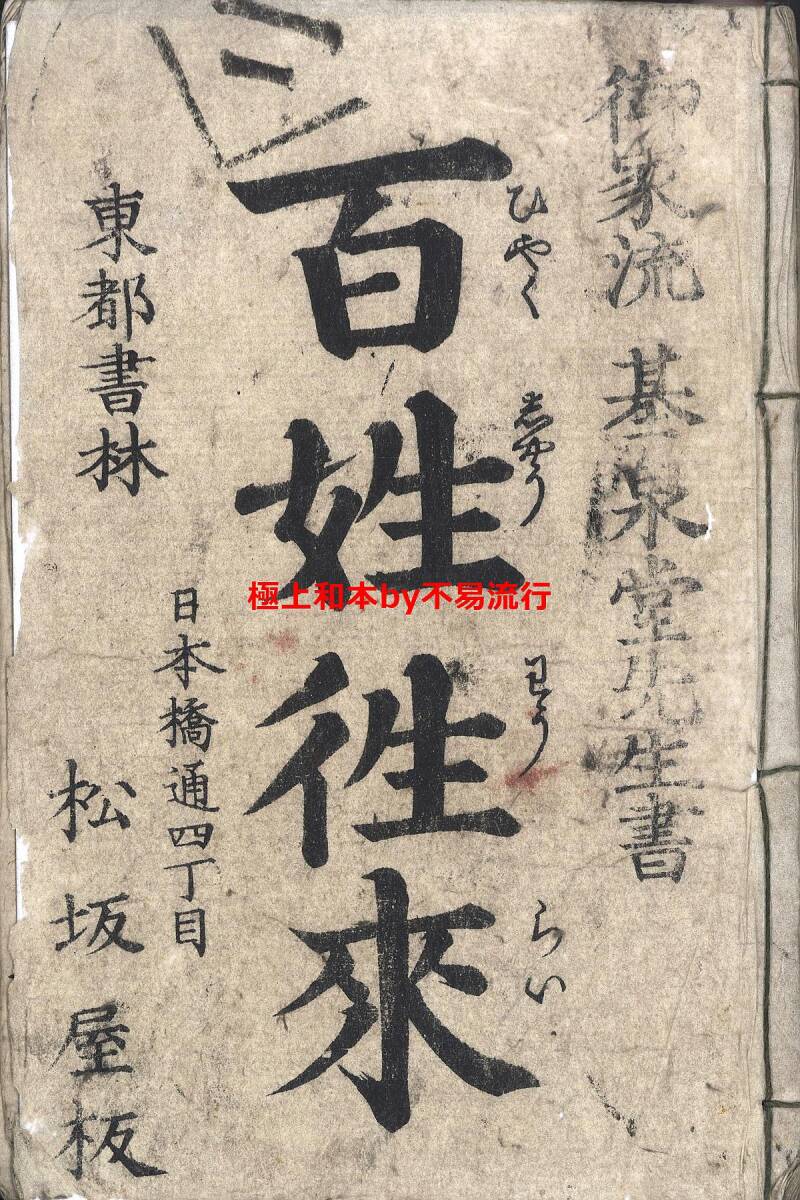 御家流 基泉堂先生書
百姓徃來
ひやくしやうわうらい
東都書林
日本橋通四丁目
松坂屋板
極上和本by不易流行